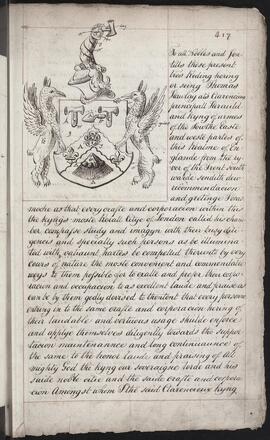 417
To all Nobles and Jen
tills these present
lres Reding hering
or seing Thomas
Hawley als Clarencieux
principall Herauld
and Kyng of armes
of the Sowthe Easte
and weste parties of
this Realme of En
glande from the ryv
er of Trent south
warde sendith due
recommendacion
and gretinge Foras
moche as that every crafte and corporacion within this
the kyngs moste Roiall Citye of London called his cham
ber compasse study and imagyn with their busy dily
gences and specially such persons as be illumina
ted with valiaunt hartes be compelled therunto by every
cours of nature the moste convenyent and commendable
weys to them possible for to exalte and prefer their corpo
racion and occupacion to as excellent laude and praise as
can be by them godly devised to thentent that every persone
entring in to the same crafte and corporacion hering of
their laudable and vertuous usage shulde enforce
and applye themselves diligently towards the suppor
tacion maintenannce and long continuannce of
the same to the honor laude and praising of all
mighty God the kyng our soveraigne lorde and his
saide noble citie and the saide crafte and corpora
cion Amongst whom I the said Clarencieux Kyng